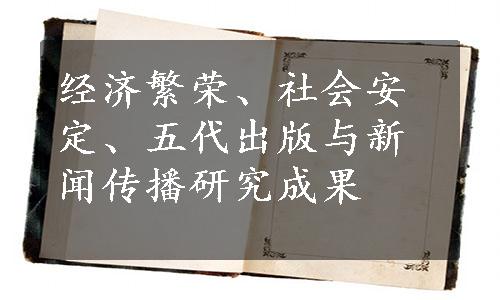 经济繁荣、社会安
定、五代出版与新
闻传播研究成果